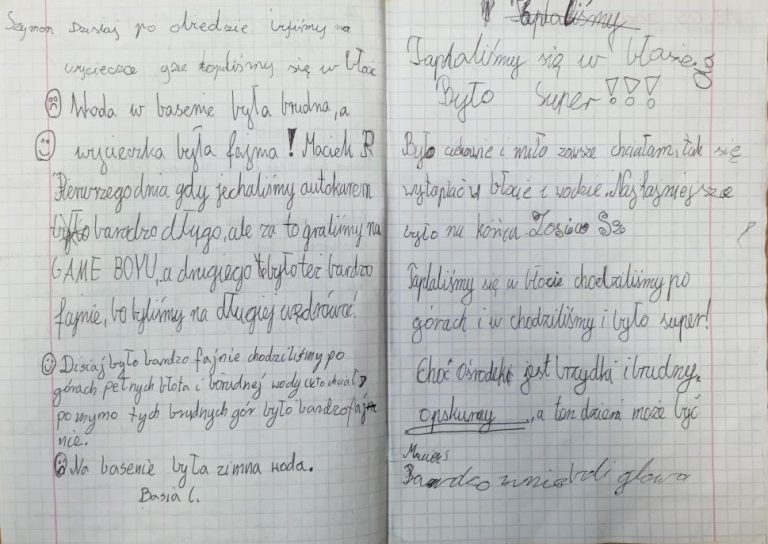 Szymon Dzisiaj po obiedzie byliśmy na
wycieczce gdze topliśmy się w błoc
Woda w basenie była brudna, a
wycieczka była fajna! Maciek R
Pierwrzego dnia gdy jechaliśmy autokarem
było bardzo długo, ale za to graliśmy na
GAME BOYU, a drugiego było też bardzo
fajnie, bo byliśmy na długiej wędrówce.
Dzisiaj było bardzo fajnie chodziliśmy po
górach pełnych błota i borudnej wody
pomymo tych brudnych gór było bardzo faj
nie.
Na basenie była zimna woda.
Basia C.
Taplaliśmy
Taplaliśmy się w błocie. Ola
Było Super!!!
Było ciekawie i miło zawsze chciałam tak się
wytaplać w błocie i wodzie. Najfajniejsze
było na końcu. Zosia Sz
Taplaliśmy się w błocie chodziliśmy po
górach i w chodziliśmy i było super!
Choć Ośrodek jest brzydki i brudny,
opskurny, a ten dzień może być
Maciej S
Bardzo mnie boli głowa